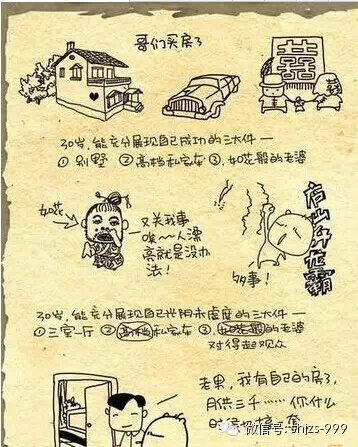 哥们买房了
囍
30岁,能充分展现自己成功的三大件——
① 别墅 ② 高档私家车 ③ 如花般的老婆
如花
又关我事
唉~人漂
亮就是没办
法!
多事!
庐山升龙霸
30岁,能充分展现自己光阴未虚度的三大件——
① 三室一厅 ② 高档私家车 ③ 如花般的老婆
对得起观众
老果,我有自己的房了,
月供三千……你什么
时
一套
微信号: shizs-999